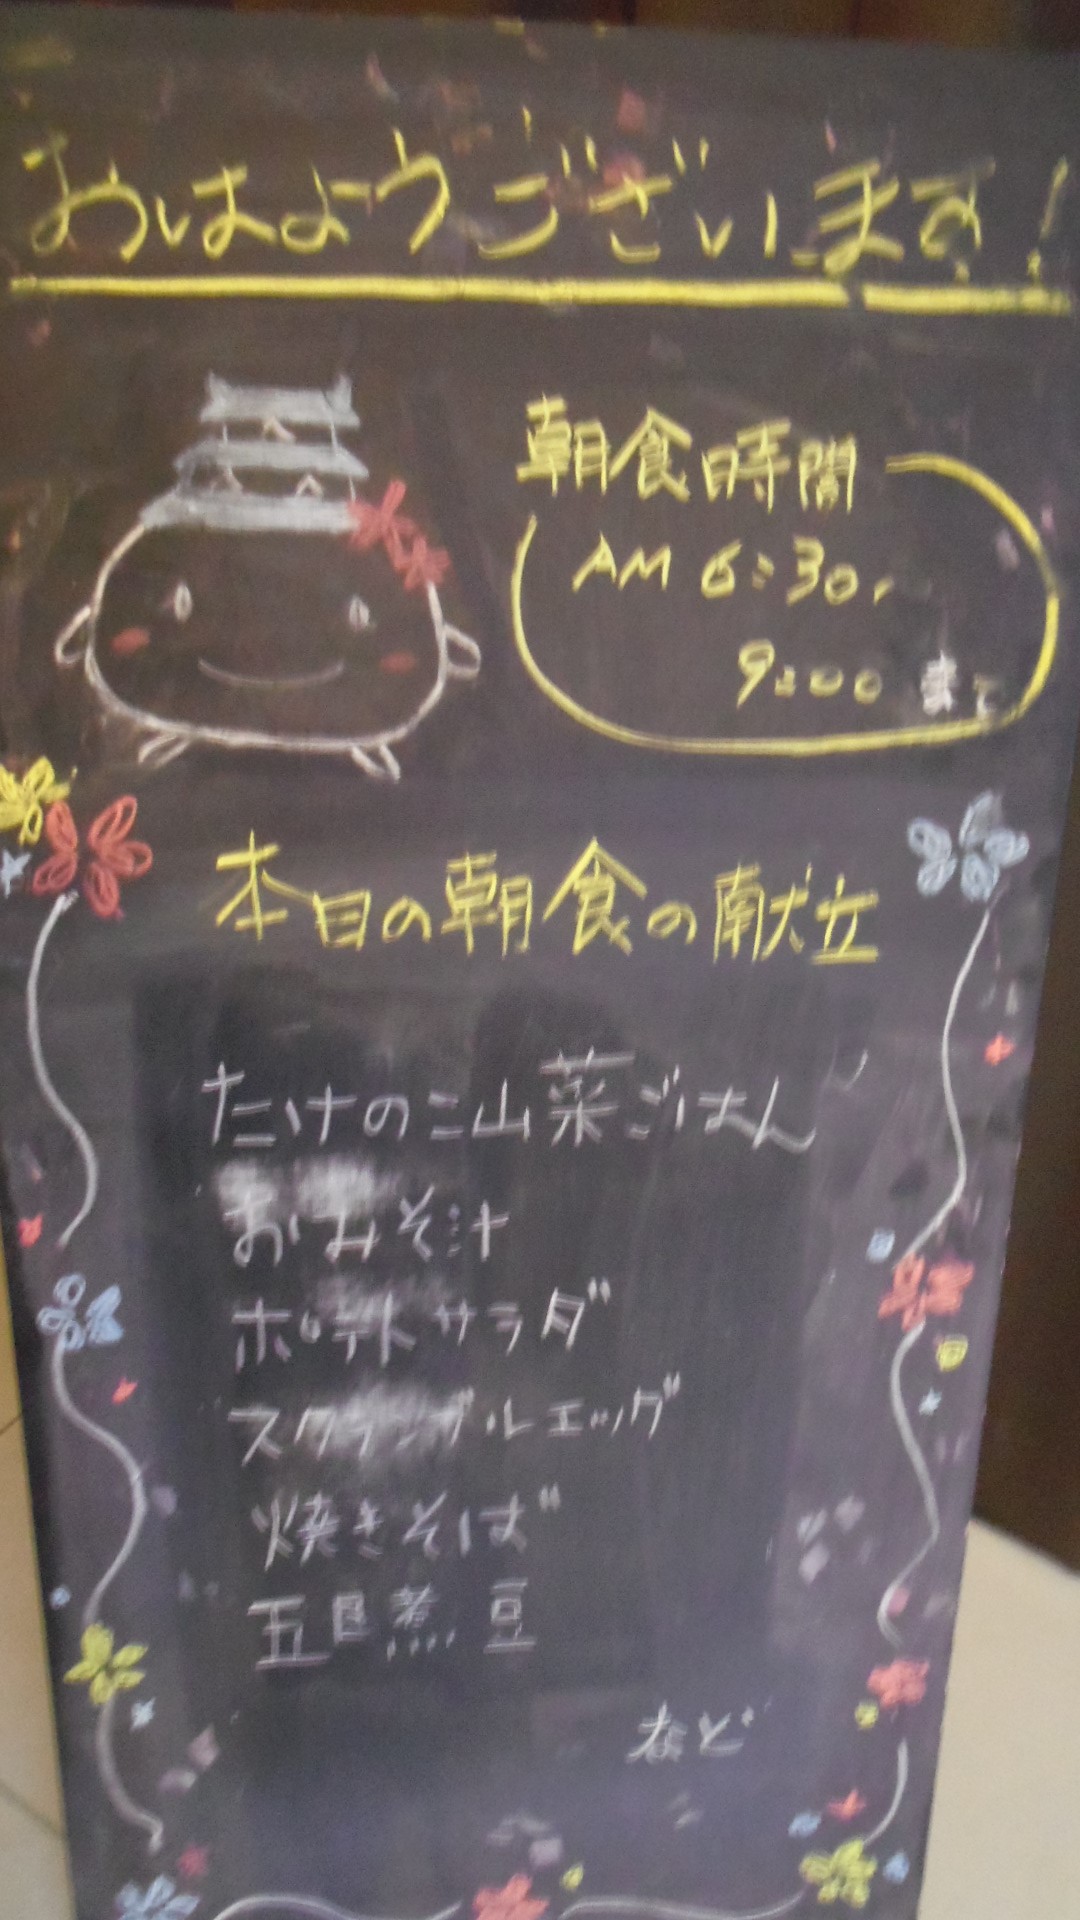 おはようございます!
朝食時間
AM 6:30~
9:00 まで
本日の朝食の献立
たけのこ山菜ごはん
おみそ汁
ポテトサラダ
スクランブルエッグ
焼きそば
五目煮豆
など